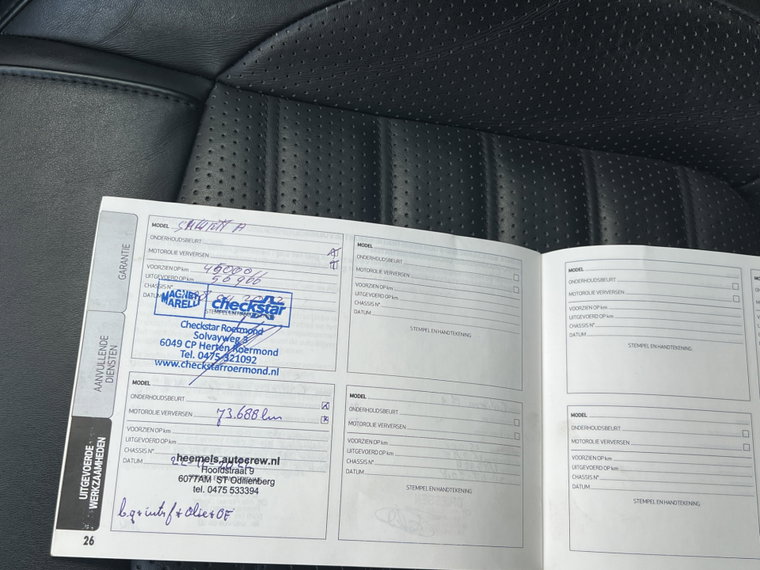 GARANTIE
AANVULLENDE
DIENSTEN
UITGEVOERDE
WERKZAAMHEDEN
26
MODEL
ONDERHOUDSBEURT
MOTOROLIE VERVERSEN
VOORZIEN OP km 45000
UITGEVOERD OP km 50966
CHASSIS N°
DATUM
MAGNETI
MARELLI
checkstar
Checkstar Roermond
Solvayweg 3
6049 CP Herten-Roermond
Tel. 0475-321092
www.checkstarroermond.nl
MODEL
ONDERHOUDSBEURT
MOTOROLIE VERVERSEN 73.688 km
VOORZIEN OP km
UITGEVOERD OP km
CHASSIS N°
DATUM
heemels.autocrew.nl
Hoofdstraat 9
6077AM ST Odiliënberg
tel. 0475 533394
MODEL
ONDERHOUDSBEURT
MOTOROLIE VERVERSEN
VOORZIEN OP km
UITGEVOERD OP km
CHASSIS N°
DATUM
STEMPEL EN HANDTEKENING
MODEL
ONDERHOUDSBEURT
MOTOROLIE VERVERSEN
VOORZIEN OP km
UITGEVOERD OP km
CHASSIS N°
DATUM
STEMPEL EN HANDTEKENING
MODEL
ONDERHOUDSBEURT
MOTOROLIE VERVERSEN
VOORZIEN OP km
UITGEVOERD OP km
CHASSIS N°
DATUM
STEMPEL EN HANDTEKENING
MODEL
ONDERHOUDSBEURT
MOTOROLIE VERVERSEN
VOORZIEN OP km
UITGEVOERD OP km
CHASSIS N°
DATUM
STEMPEL EN HANDTEKENING